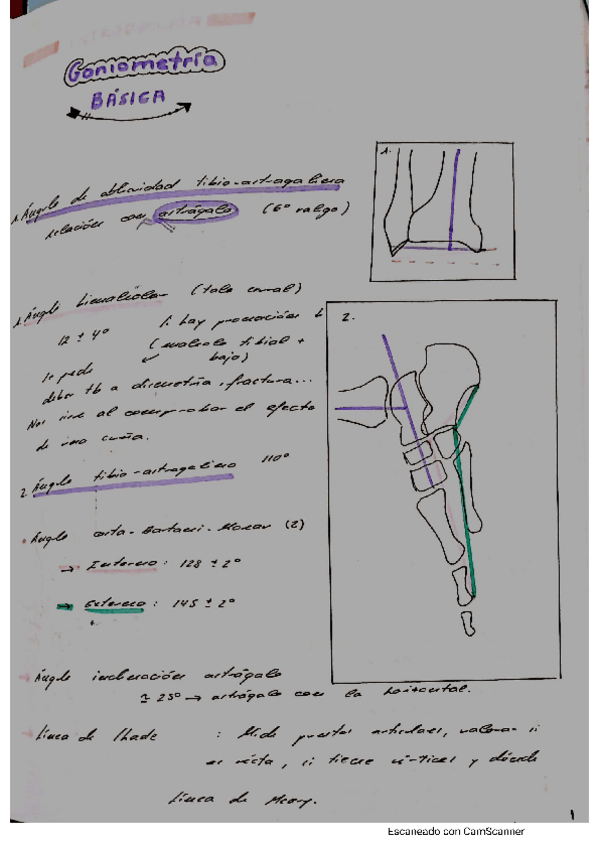 Goniometría
BÁSICA
1. Ángulo de oblicuidad tibio-astragalina
relación con astrágalo (6º valgo)
1.
Ángulo Bimaleolar
12 ± 4º
1. hay pronación
(maléolo tibial +
bajo)
deber tb a dismetría, fractura...
Nos sirve al comprobar el efecto
de una cuña.
2. Ángulo tibio-astragalino 110º
2.
Ángulo Costa-Bertani-Moreau (2)
→ Interno: 128 ± 2º
→ Externo: 145 ± 2º
Ángulo inclinación astrágalo
≅ 25º → astrágalo con la horizontal.
Línea de Shade : Mide puntos articulares, valorar si
es recta, si tiene vértices y dónde
Línea de Meary.
1
Escaneado con CamScanner